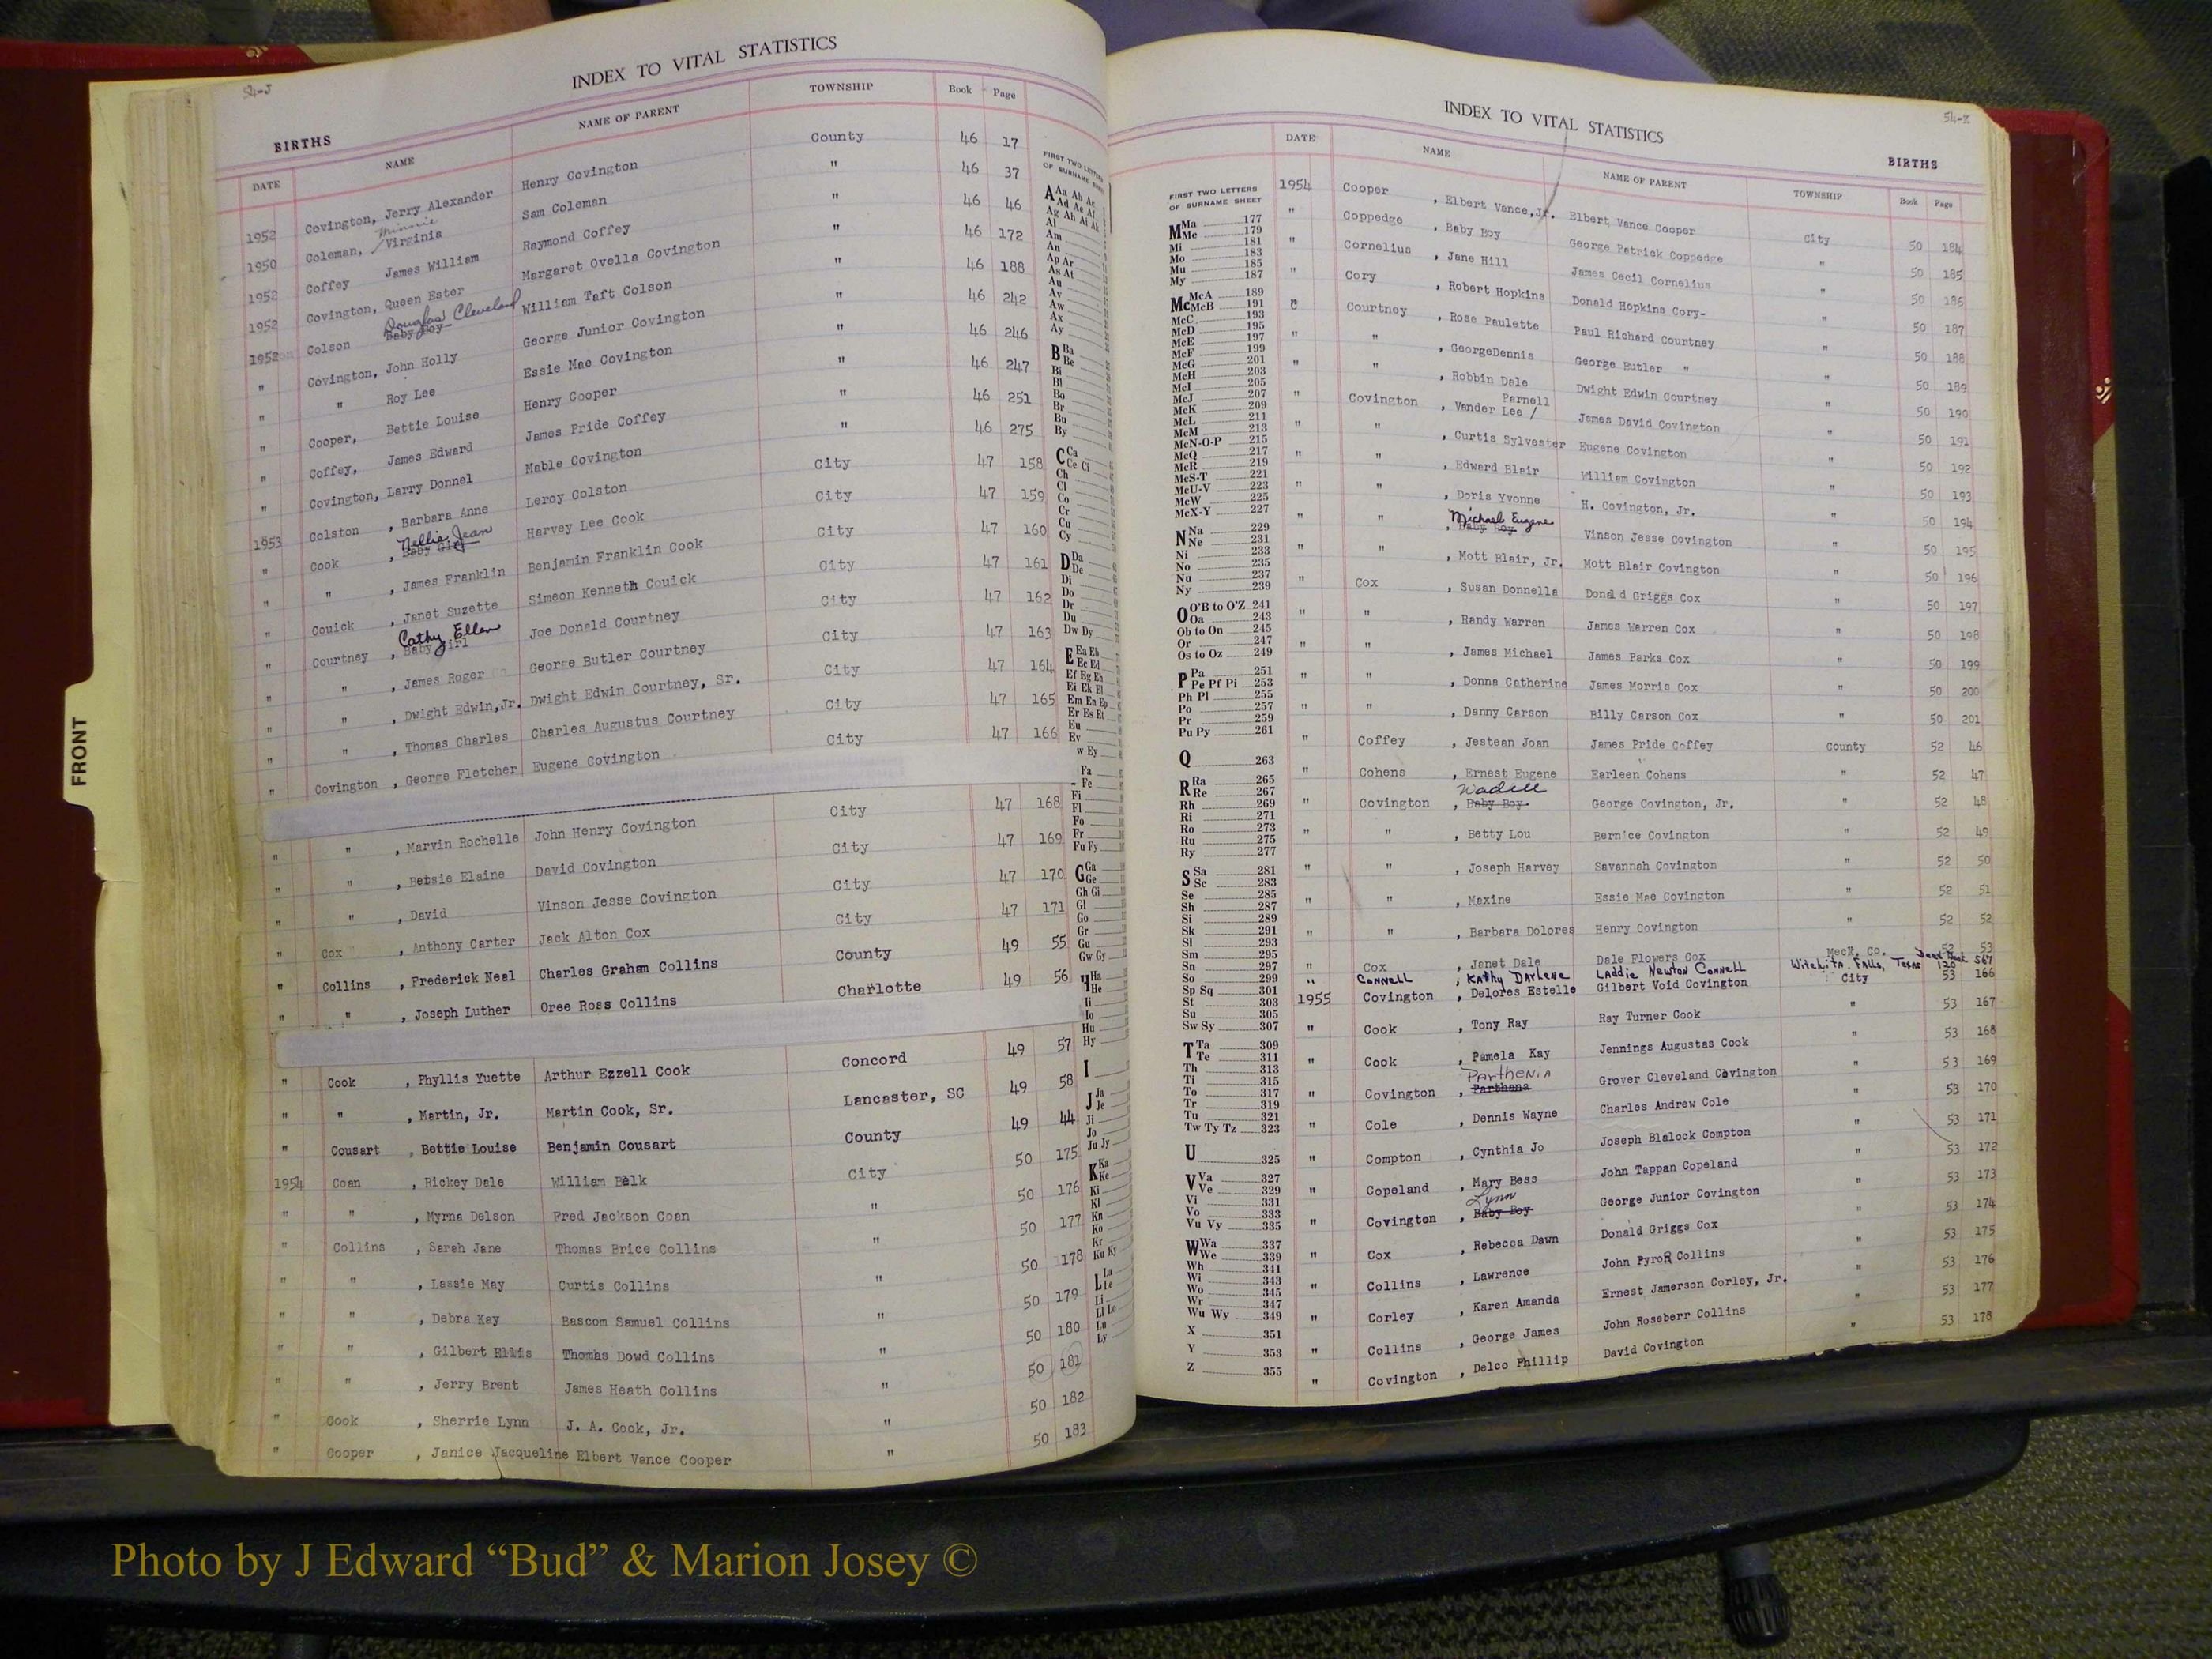 54-J
INDEX TO VITAL STATISTICS
BIRTHS
DATE NAME NAME OF PARENT TOWNSHIP Book Page
1952 Covington, Jerry Alexander Henry Covington County 46 17
1950 Coleman, Minnie Virginia Sam Coleman " 46 37
1952 Coffey James William Raymond Coffey " 46 46
1952 Covington, Queen Ester Margaret Ovella Covington " 46 172
1952 Colson Douglas Cleveland Baby Boy William Taft Colson " 46 188
" Covington, John Holly George Junior Covington " 46 242
" " Roy Lee Essie Mae Covington " 46 246
" Cooper, Bettie Louise Henry Cooper " 46 247
" Coffey, James Edward James Pride Coffey " 46 251
" Covington, Larry Donnel Mable Covington " 46 275
1953 Colston , Barbara Anne Leroy Colston City 47 158
" Cook , Nellie Jean Baby Girl Harvey Lee Cook City 47 159
" " , James Franklin Benjamin Franklin Cook City 47 160
" Couick , Janet Suzette Simeon Kenneth Couick City 47 161
" Courtney , Cathy Ellen Baby Girl Joe Donald Courtney City 47 162
" " , James Roger George Butler Courtney City 47 163
" " , Dwight Edwin,Jr. Dwight Edwin Courtney, Sr. City 47 164
" " , Thomas Charles Charles Augustus Courtney City 47 165
" Covington , George Fletcher Eugene Covington City 47 166
" " , Marvin Rochelle John Henry Covington City 47 168
" " , Betsie Elaine David Covington City 47 169
" " , David Vinson Jesse Covington City 47 170
" Cox , Anthony Carter Jack Alton Cox City 47 171
" Collins , Frederick Neal Charles Graham Collins County 49 55
" " , Joseph Luther Oree Ross Collins Charlotte 49 56
" Cook , Phyllis Yuette Arthur Ezzell Cook Concord 49 57
" " , Martin, Jr. Martin Cook, Sr. Lancaster, SC 49 58
" Cousart , Bettie Louise Benjamin Cousart County 49 44
1954 Coan , Rickey Dale William Belk City 50 175
" " , Myrna Delson Fred Jackson Coan " 50 176
" Collins , Sarah Jane Thomas Brice Collins " 50 177
" " , Lassie May Curtis Collins " 50 178
" " , Debra Kay Bascom Samuel Collins " 50 179
" " , Gilbert Ellis Thomas Dowd Collins " 50 180
" " , Jerry Brent James Heath Collins " 50 181
" Cook , Sherrie Lynn J. A. Cook, Jr. " 50 182
" Cooper , Janice Jacqueline Elbert Vance Cooper " 50 183
FIRST TWO LETTERS
OF SURNAME SHEET
A Aa Ab Ac
Ad Ae Af
Ag Ah Ai Ak
Al
Am
An
Ap Ar
As At
Au
Av
Aw
Ax
Ay
B Ba
Be
Bi
Bl
Bo
Br
Bu
By
C Ca
Ce Ci
Ch
Cl
Co
Cr
Cu
Cy
D Da
De
Di
Do
Dr
Du
Dw Dy
E Ea Eb
Ec Ed
Ef Eg Eh
Ei Ek El
Em En Ep
Er Es Et
Eu
Ev
w Ey
Fa
Fe
Fi
Fl
Fo
Fr
Fu Fy
G Ga
Ge
Gh Gi
Gl
Go
Gr
Gu
Gw Gy
H Ha
He
Ii
Io
Hu
Hy
I
J Ja
Je
Ji
Jo
Ju Jy
K Ka
Ke
Ki
Kl
Kn
Ko
Kr
Ku Ky
L La
Le
Li
Ll Lo
Lu
Ly
FRONT
54-K
INDEX TO VITAL STATISTICS
BIRTHS
DATE NAME NAME OF PARENT TOWNSHIP Book Page
FIRST TWO LETTERS
OF SURNAME SHEET
M Ma 177
Me 179
Mi 181
Mo 183
Mu 185
My 187
Mc McA 189
McB 191
McC 193
McD 195
McE 197
McF 199
McG 201
McH 203
McI 205
McJ 207
McK 209
McL 211
McM 213
McN-O-P 215
McQ 217
McR 219
McS-T 221
McU-V 223
McW 225
McX-Y 227
N Na 229
Ne 231
Ni 233
No 235
Nu 237
Ny 239
O O'B to O'Z 241
Oa 243
Ob to On 245
Or 247
Os to Oz 249
P Pa 251
Pe Pf Pi 253
Ph Pl 255
Po 257
Pr 259
Pu Py 261
Q 263
R Ra 265
Re 267
Rh 269
Ri 271
Ro 273
Ru 275
Ry 277
S Sa 281
Sc 283
Se 285
Sh 287
Si 289
Sk 291
Sl 293
Sm 295
Sn 297
So 299
Sp Sq 301
St 303
Su 305
Sw Sy 307
T Ta 309
Te 311
Th 313
Ti 315
To 317
Tr 319
Tu 321
Tw Ty Tz 323
U 325
V Va 327
Ve 329
Vi 331
Vo 333
Vu Vy 335
W Wa 337
We 339
Wh 341
Wi 343
Wo 345
Wr 347
Wu Wy 349
X 351
Y 353
Z 355
1954 Cooper , Elbert Vance,Jr. Elbert Vance Cooper City 50 184
" Coppedge , Baby Boy George Patrick Coppedge " 50 185
" Cornelius , Jane Hill James Cecil Cornelius " 50 186
" Cory , Robert Hopkins Donald Hopkins Cory- " 50 187
" Courtney , Rose Paulette Paul Richard Courtney " 50 188
" " , GeorgeDennis George Butler " " 50 189
" " , Robbin Dale Dwight Edwin Courtney " 50 190
" Covington , Vander Lee / Parnell James David Covington " 50 191
" " , Curtis Sylvester Eugene Covington " 50 192
" " , Edward Blair William Covington " 50 193
" " , Doris Yvonne H. Covington, Jr. " 50 194
" " , Michael Eugene Baby Boy Vinson Jesse Covington " 50 195
" " , Mott Blair, Jr. Mott Blair Covington " 50 196
" Cox , Susan Donnella Donald Griggs Cox " 50 197
" " , Randy Warren James Warren Cox " 50 198
" " , James Michael James Parks Cox " 50 199
" " , Donna Catherine James Morris Cox " 50 200
" " , Danny Carson Billy Carson Cox " 50 201
" Coffey , Jestean Joan James Pride Coffey County 52 46
" Cohens , Ernest Eugene Earleen Cohens " 52 47
" Covington , Wadell Baby Boy George Covington, Jr. " 52 48
" " , Betty Lou Bernice Covington " 52 49
" " , Joseph Harvey Savannah Covington " 52 50
" " , Maxine Essie Mae Covington " 52 51
" " , Barbara Dolores Henry Covington " 52 52
" Cox , Janet Dale Dale Flowers Cox Meck. Co. 52 53
" Connell , Kathy Darlene Laddie Newton Connell Witchita Falls, Texas 120 567
1955 Covington , Delores Estelle Gilbert Void Covington City 53 166
" Cook , Tony Ray Ray Turner Cook " 53 167
" Cook , Pamela Kay Jennings Augustas Cook " 53 168
" Covington , Parthenia Parthana Grover Cleveland Covington " 53 169
" Cole , Dennis Wayne Charles Andrew Cole " 53 170
" Compton , Cynthia Jo Joseph Blalock Compton " 53 171
" Copeland , Mary Bess John Tappan Copeland " 53 172
" Covington , Lynn Baby Boy George Junior Covington " 53 173
" Cox , Rebecca Dawn Donald Griggs Cox " 53 174
" Collins , Lawrence John Pyron Collins " 53 175
" Corley , Karen Amanda Ernest Jamerson Corley, Jr. " 53 176
" Collins , George James John Roseberr Collins " 53 177
" Covington , Delco Phillip David Covington " 53 178
Photo by J Edward “Bud” & Marion Josey ©